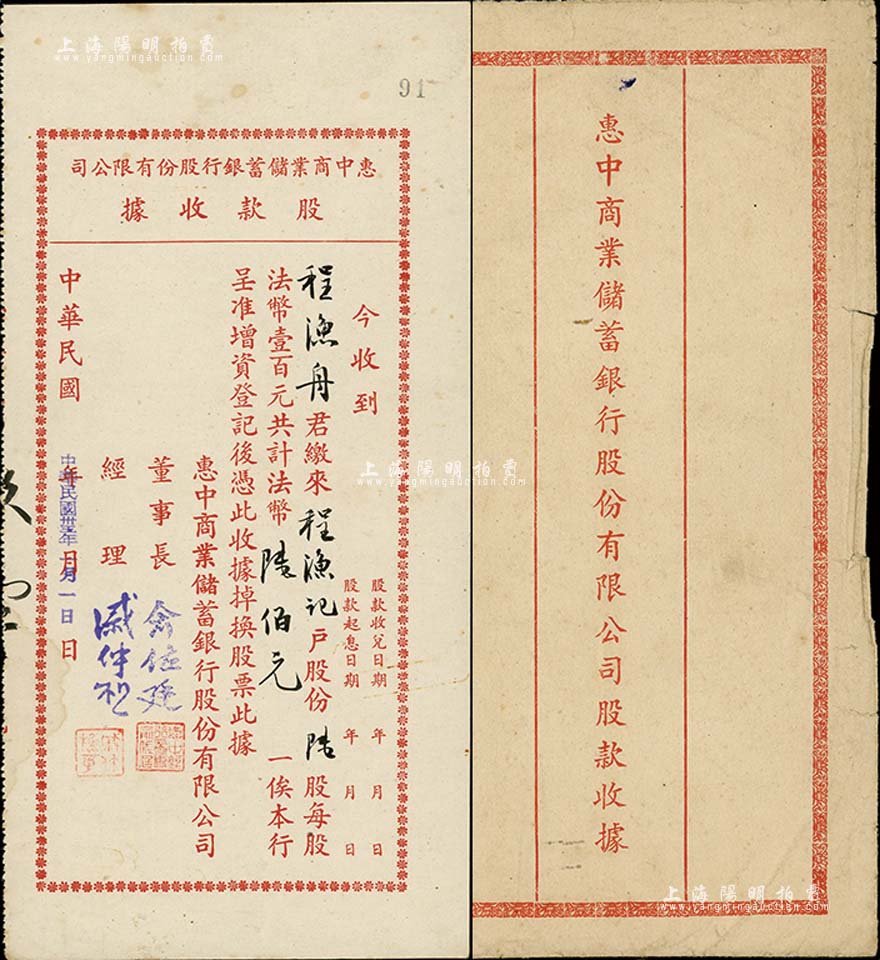 上海陽明拍賣
www.yangmingauction.com
91
惠中商業儲蓄銀行股份有限公司
股款收據
今收到
股款收兌日期 年 月 日
股款起息日期 年 月 日
程漁舟君繳來程漁記戶股份陸股每股
法幣壹百元共計法幣陸佰元 一俟本行
呈准增資登記後憑此收據掉換股票此據
惠中商業儲蓄銀行股份有限公司
董事長
經理
戚仲
中華民國 年 月 日
中華民國
年
月一日
惠中商業儲蓄銀行股份有限公司股款收據
上海陽明拍賣
www.yangmingauction.com
上海陽明拍賣
www.yangmingauction.com